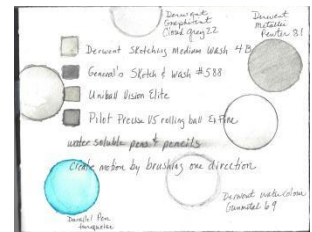 Derwent
Graphitint
Cloud grey 22
Derwent
Metallic
Pewter 81
Derwent Sketching Medium Wash 4B
General's Sketch & Wash #588
Uniball Vision Elite
Pilot Precise V5 rolling ball Ex Fine
water soluble pens & pencils
Create motion by brushing one direction
Derwent watercolour
Gunmetal 69
Pen
turquoise